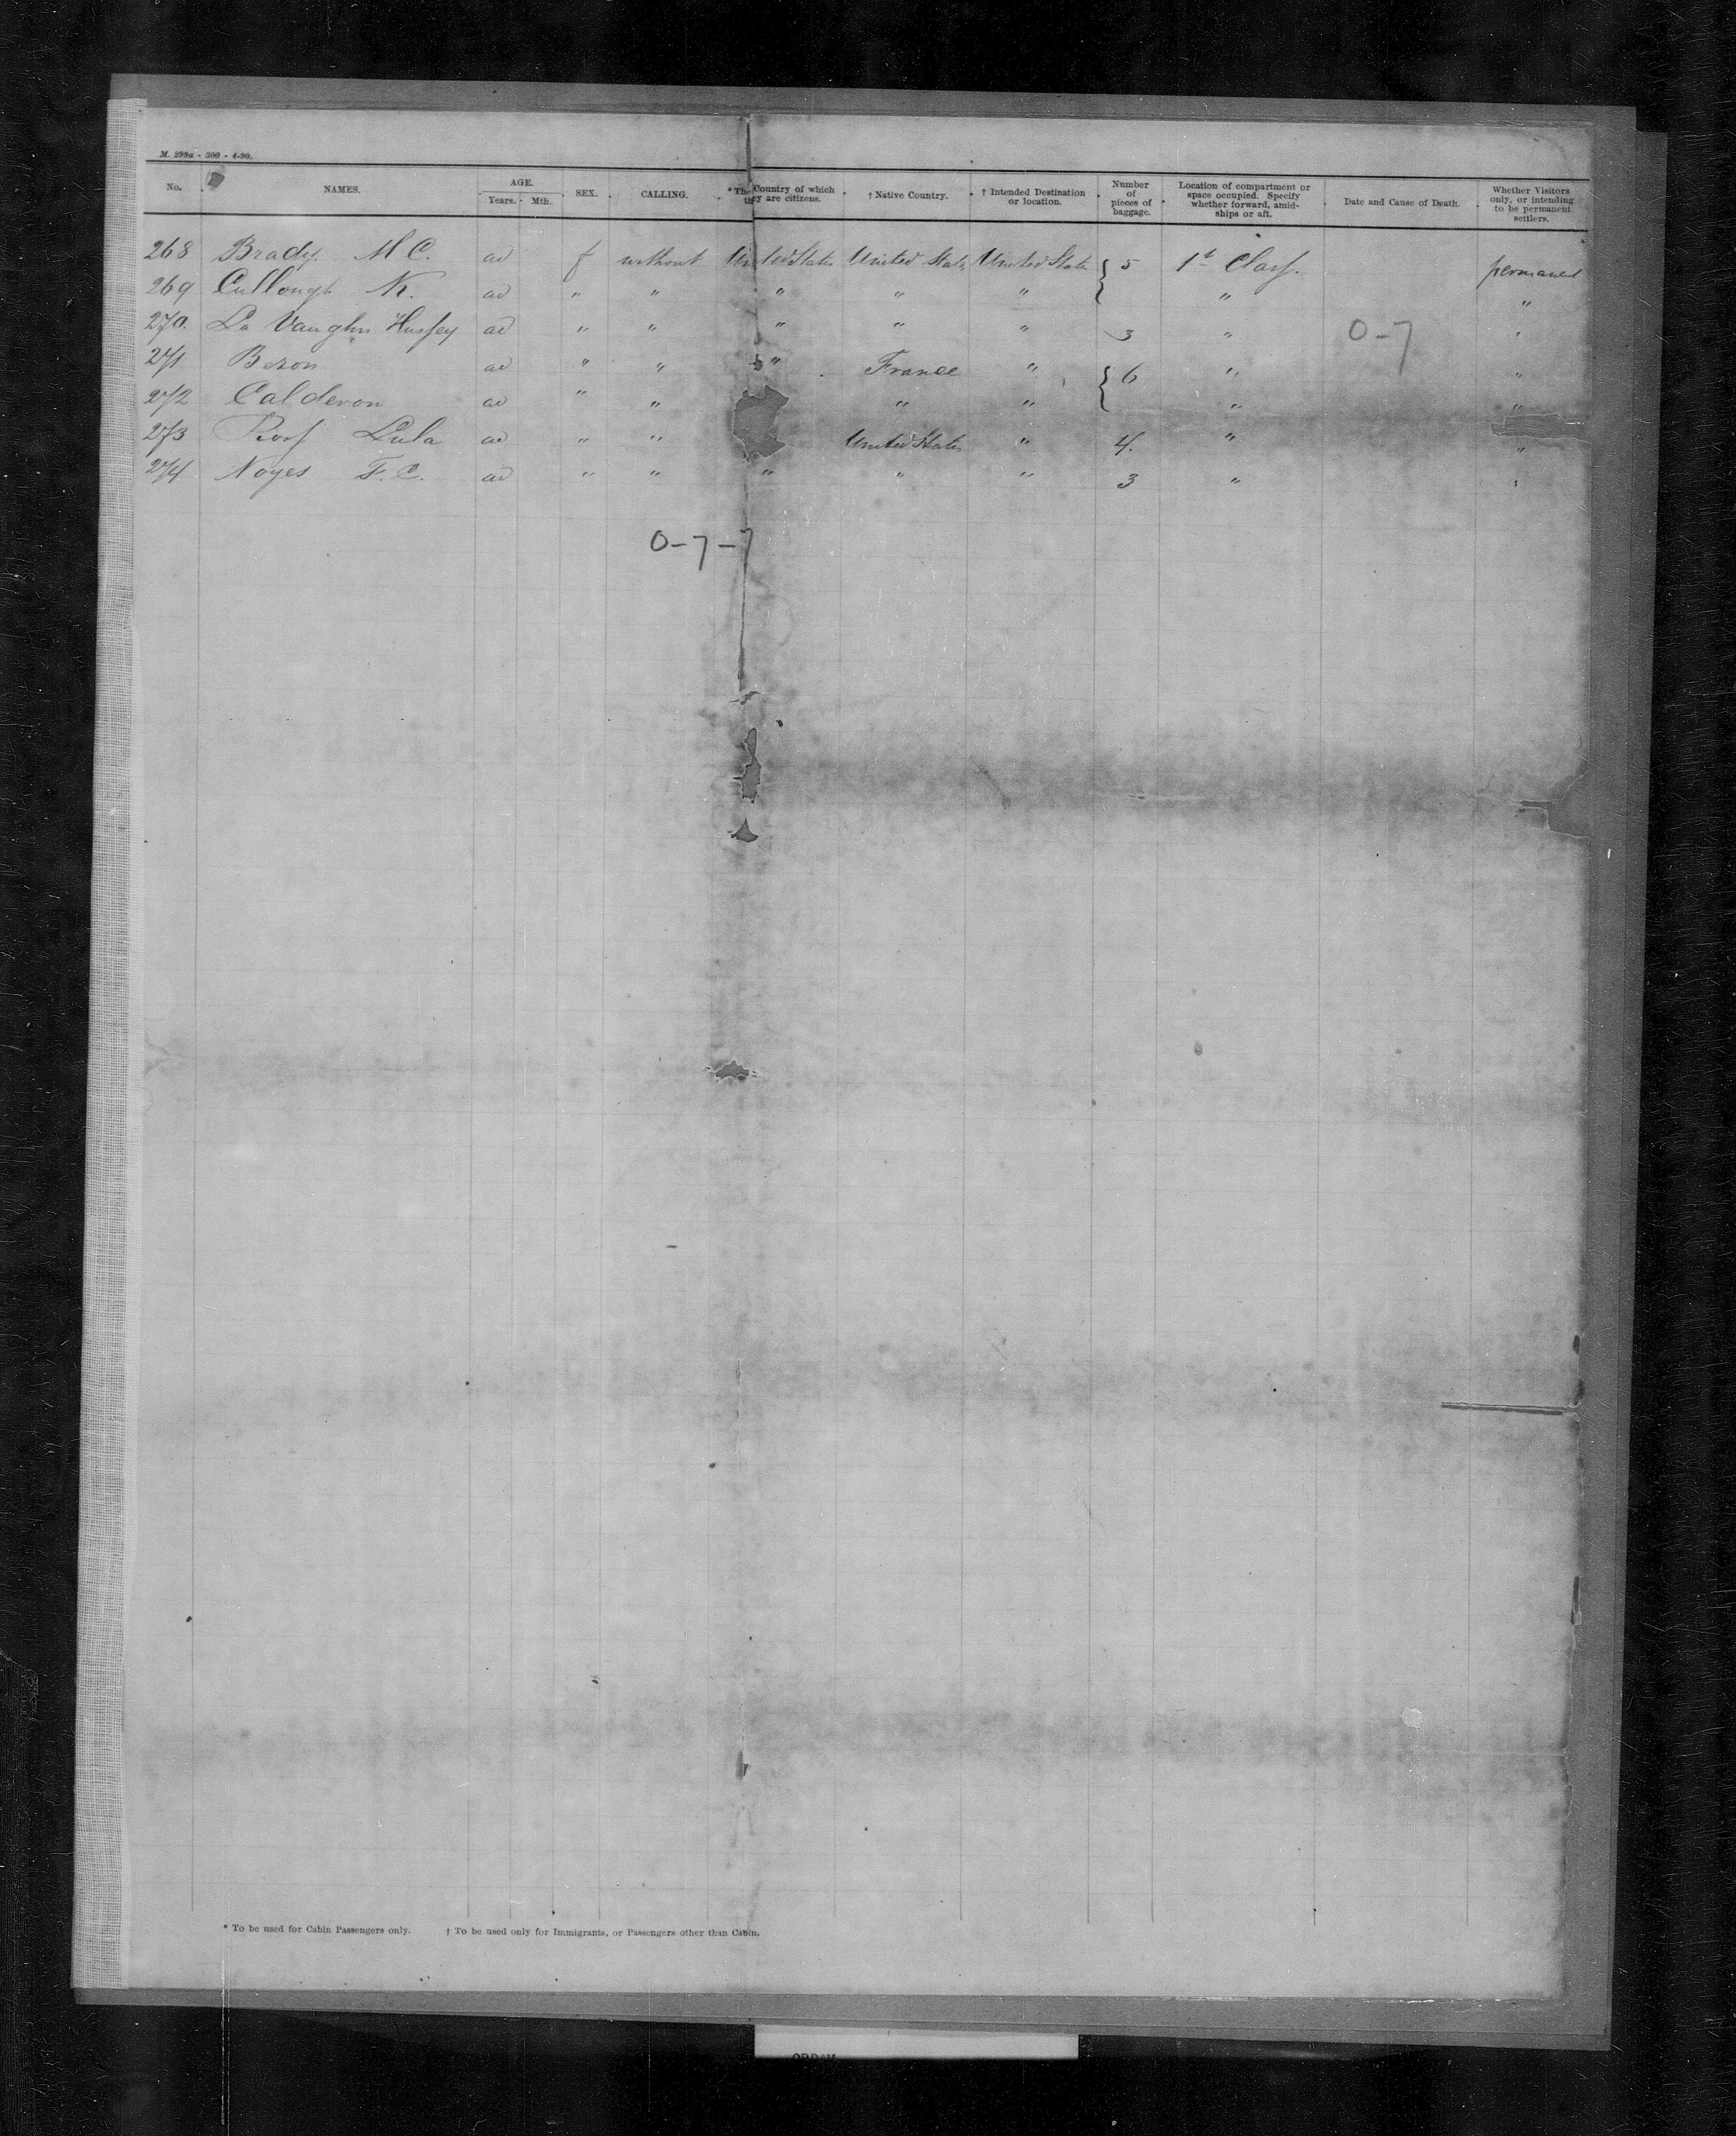 M. 299a - 300 - 4-90.
No. NAMES. AGE. Years. Mth. SEX. CALLING. * The Country of which they are citizens. † Native Country. † Intended Destination or location. Number of pieces of baggage. Location of compartment or space occupied. Specify whether forward, amidships or aft. Date and Cause of Death. Whether Visitors only, or intending to be permanent settlers.
268 Brady M C. ad f without United States United States United States } 5 1st Class. permanent
269 Cullough K. ad " " " " " " "
270. La Vaughn Hussey ad " " " " " 3 " 0-7 "
271 Bezon ad " " " France " } 6 " "
272 Calderon ad " " " " " "
273 Lula ad " " United States " 4. " "
274 Noyes F. C. ad " " " " " 3 " "
0-7-7
* To be used for Cabin Passengers only. † To be used only for Immigrants, or Passengers other than Cabin.